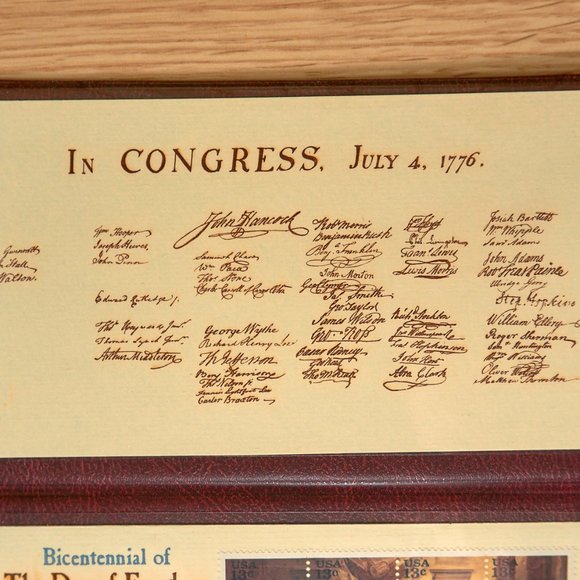 IN CONGRESS, JULY 4, 1776.
Button Gwinnett
Hall
Walton.
Wm Hooper
Joseph Hewes,
John Penn
Edward Rutledge /.
Thos Heyward Junr.
Thomas Lynch Junr.
Arthur Middleton
John Hancock
Samuel Chase
Wm Paca
Thos Stone
Charles Carroll of Carrollton
George Wythe
Richard Henry Lee
Th Jefferson
Benj Harrison
Thos Nelson jr.
Francis Lightfoot Lee
Carter Braxton
Robt Morris
Benjamin Rush
Benj. Franklin
John Morton
Geo Clymer
Jas Smith
Geo. Taylor
James Wilson
Geo. Ross
Caesar Rodney
Geo Read
Tho M:Kean
Wm Floyd
Phil. Livingston
Fran. Lewis
Lewis Morris
Richd Stockton
Jno Witherspoon
Fras. Hopkinson
John Hart
Abra Clark
Josiah Bartlett
Wm Whipple
Saml Adams
John Adams
Robt Treat Paine
Elbridge Gerry
Step. Hopkins
William Ellery
Roger Sherman
Samel Huntington
Wm Williams
Oliver Wolcott
Matthew Thornton
Bicentennial of
USA 13c
USA 13c
USA
USA 13c